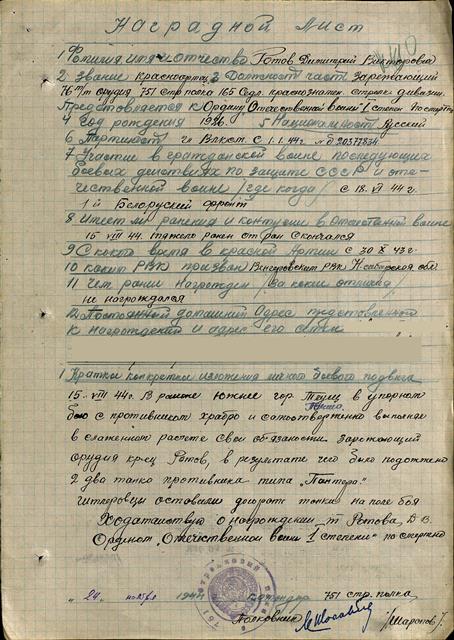 Наградной лист
1 Фамилия имя и отчество Ротов Димитрий Викторович
2 Звание красноармец 3 Должность часть Заряжающий
76 м/м орудия 751 стр полка 165 Седл. краснознамен. стрелк дивизии.
Представляется к Ордену Отечественной войны I степени Посмертно
4 Год рождения 1926 5 Национальность Русский
6 Партийность чл Влксм. с 1.1.44г. № 20372834
7 Участие в гражданской войне последующих
боевых действиях по защите СССР и оте-
чественной войне /где когда/ с 18. VI 44 г.
1й Белоруский фронт
8 Имеет ли ранения и контузии в Отечественой войне
15 VIII 44. тяжело ранен от ран скончался
9 С какого время в красной Армии с 30 X 43 г.
10 каким РВК призван Венгеровским РВК Н-сибирской обл.
11 Чем рании Награжден /за какие отличия/
не награждался
12 Постоянный домашний Адрес представленного
к награждений и адрес его семьи
1 Краткое конкретное изложения личного боевого подвига
15. VIII 44г. В районе южнее гор в упорном
бою с противником храбро и самоотвержено выполняя
в слаженном расчете свои обязаности заряжающий
орудия кр-ец Ротов, в результате чего было подожжено
2 два танка противника типа "Пантера"
гитлеровцы оставили догорать танки на поле боя
Ходатайствую о награждении т Ротова, Д В.
Орденом „Отечественной войны 1 степени" посмертно
„24" ноября 1944 Командир 751 стр. полка
Полковник /Шаропов/.